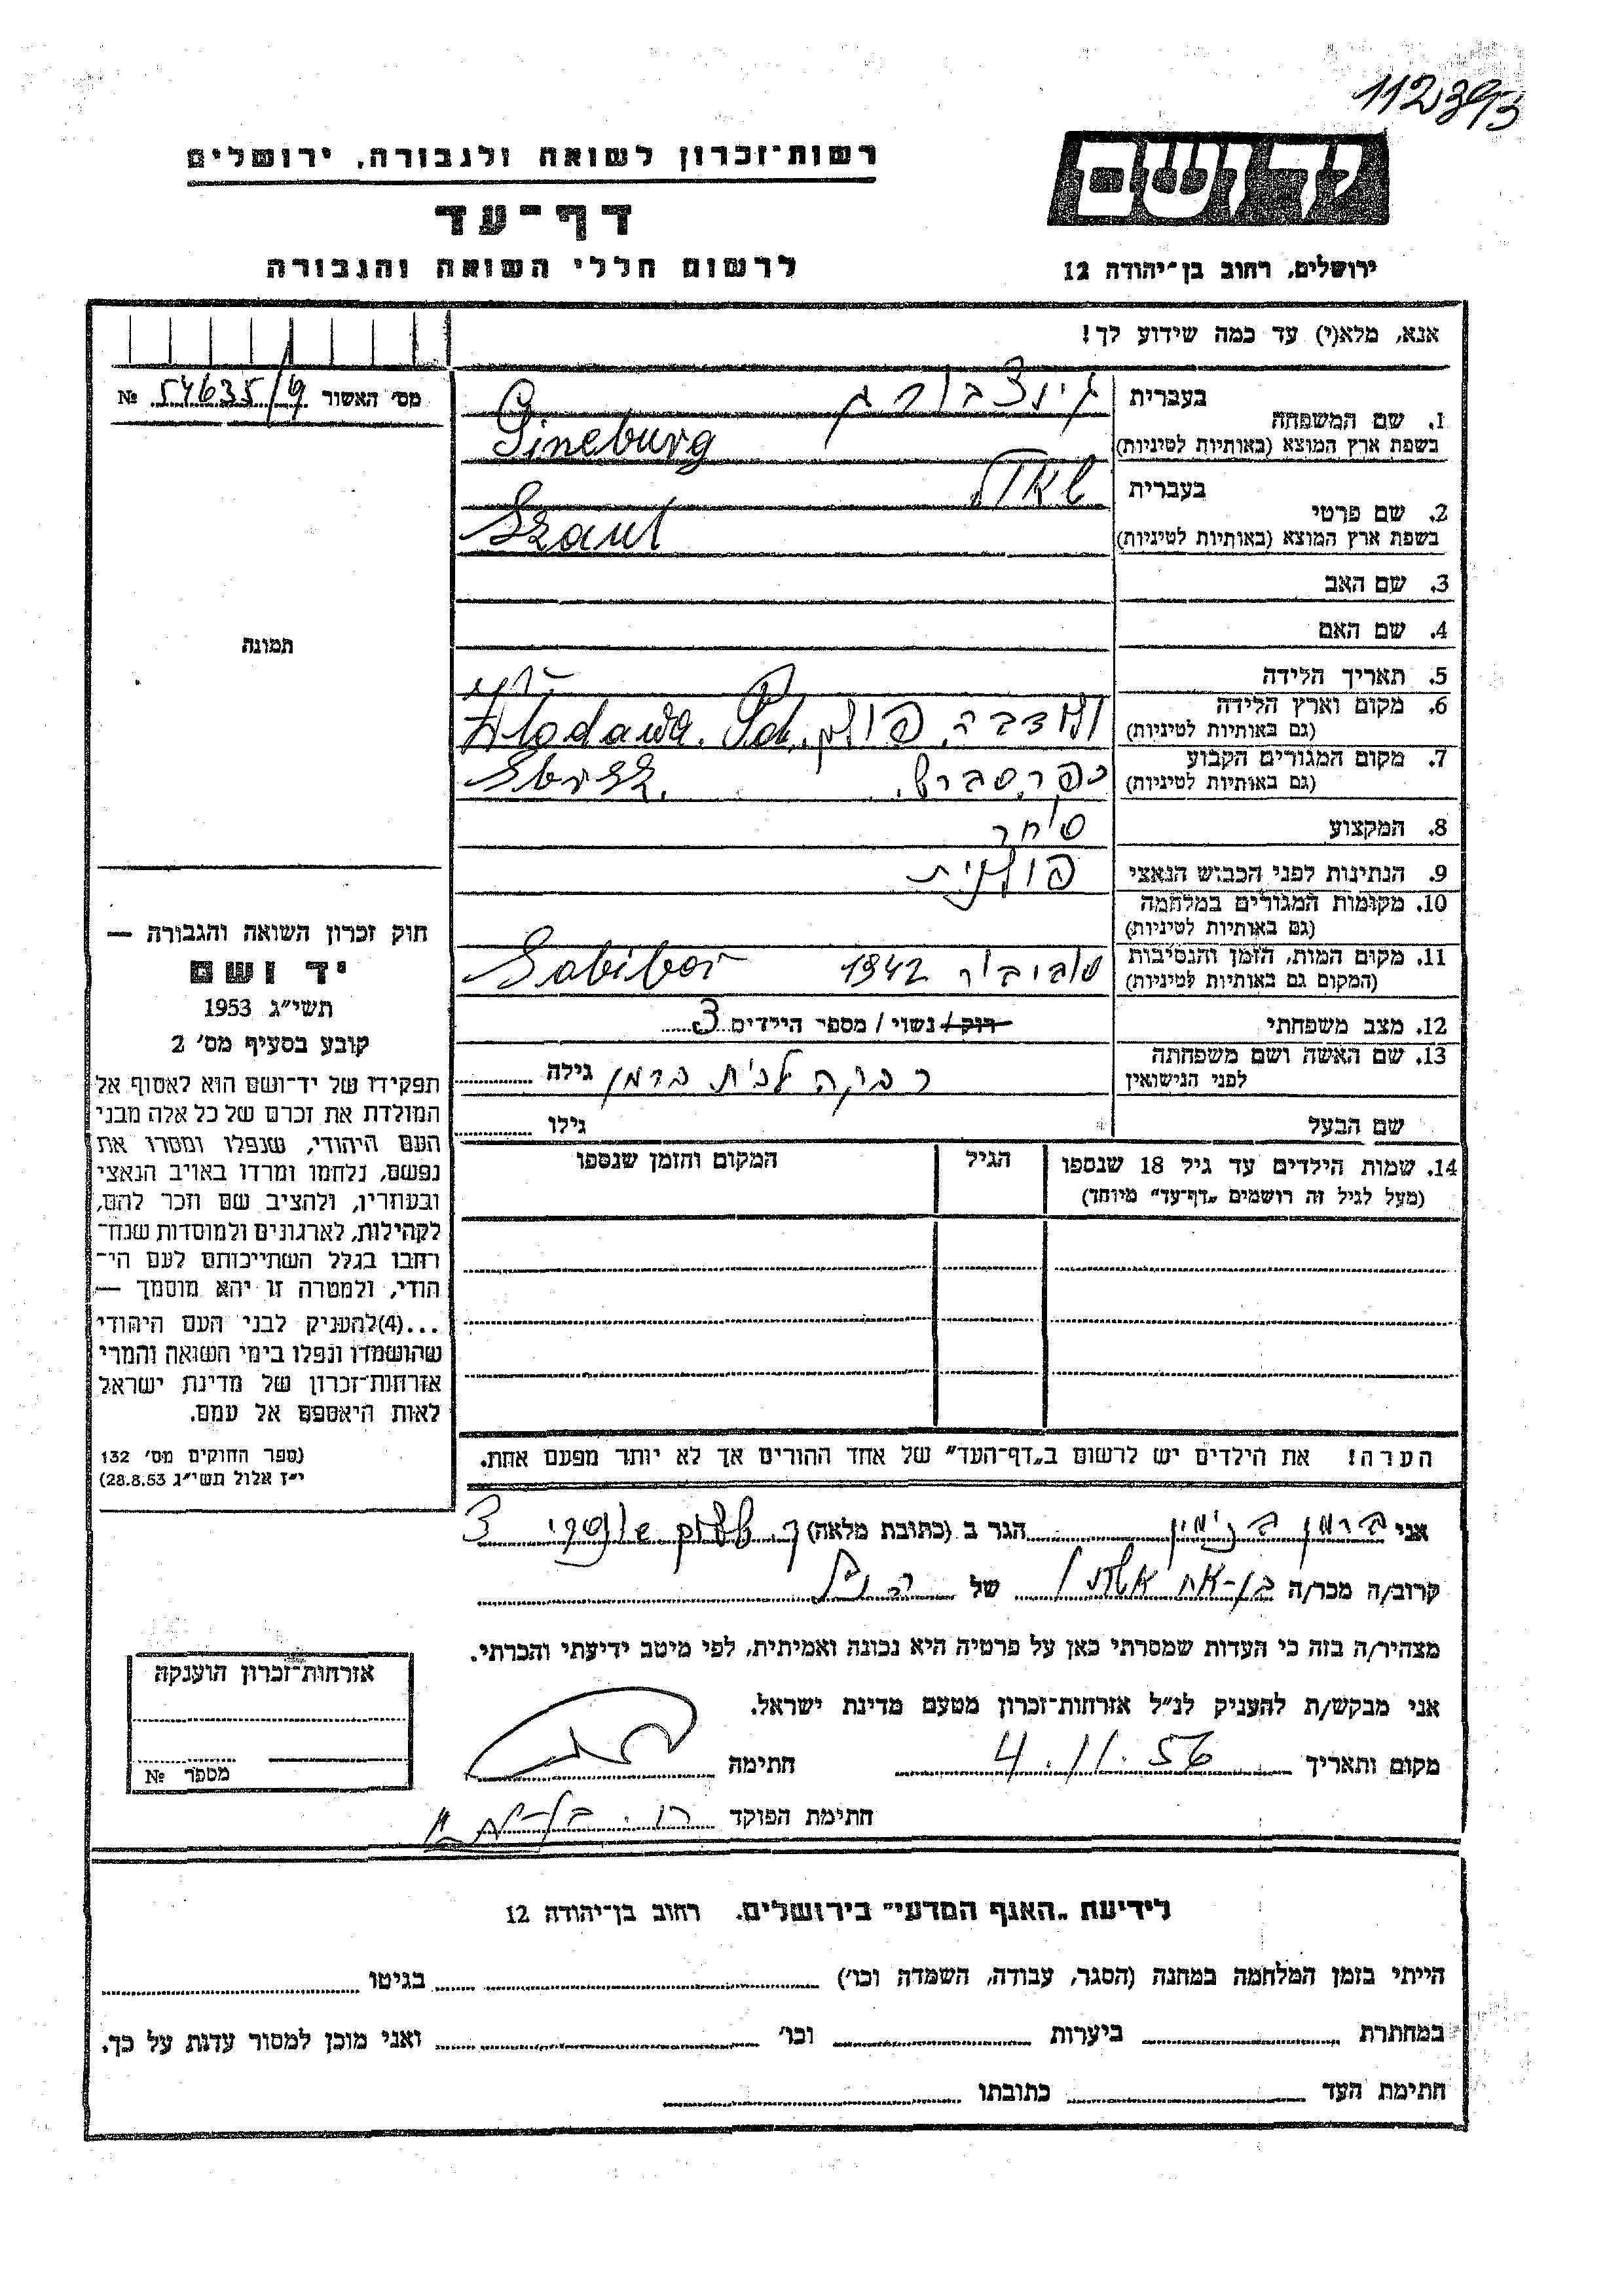 112393
יד ושם
רשות־זכרון לשואה ולגבורה, ירושלים
דף־עד
לרשום חללי השואה והגבורה
ירושלים, רחוב בן־יהודה 12
אנא, מלא(י) עד כמה שידוע לך!
מס׳ האשור 54635/9 №
בעברית גינצבורג
1. שם המשפחה
בשפת ארץ המוצא (באותיות לטיניות) Gineburg
בעברית שאול
2. שם פרטי
בשפת ארץ המוצא (באותיות לטיניות) Szaul
3. שם האב
4. שם האם
תמונה
5. תאריך הלידה
6. מקום וארץ הלידה
(גם באותיות לטיניות) ולודבה פולין. Wlodawa. Pol.
7. מקום המגורים הקבוע
(גם באותיות לטיניות)
8. המקצוע סוחר
9. הנתינות לפני הכבוש הנאצי פולנית
10. מקומות המגורים במלחמה
(גם באותיות לטיניות)
11. מקום המות, הזמן והנסיבות
(המקום גם באותיות לטיניות) סוביבור 1942 Sobibor
12. מצב משפחתי רוק / נשוי / מספר הילדים 3
13. שם האשה ושם משפחתה
לפני הנישואין רבקה לבית ברמן גילה
שם הבעל גילו
14. שמות הילדים עד גיל 18 שנספו הגיל המקום והזמן שנספו
(מעל לגיל זה רושמים „דף־עד״ מיוחד)
הערה! את הילדים יש לרשום ב„דף־העד״ של אחד ההורים אך לא יותר מפעם אחת.
חוק זכרון השואה והגבורה —
יד ושם
תשי״ג 1953
קובע בסעיף מס׳ 2
תפקידו של יד־ושם הוא לאסוף אל
המולדת את זכרם של כל אלה מבני
העם היהודי, שנפלו ומסרו את
נפשם, נלחמו ומרדו באויב הנאצי
ובעוזריו, ולהציב שם וזכר להם,
לקהילות, לארגונים ולמוסדות שנח־
רבו בגלל השתייכותם לעם הי־
הודי, ולמטרה זו יהא מוסמך —
...(4)להעניק לבני העם היהודי
שהושמדו ונפלו בימי השואה והמרי
אזרחות־זכרון של מדינת ישראל
לאות היאספם אל עמם.
(ספר החוקים מס׳ 132
י״ז אלול תשי״ג 28.8.53)
אני ברמן בנימין הגר ב (כתובת מלאה) 3
קרוב/ה מכר/ה בן־אח של
מצהיר/ה בזה כי העדות שמסרתי כאן על פרטיה היא נכונה ואמיתית, לפי מיטב ידיעתי והכרתי.
אני מבקש/ת להעניק לנ״ל אזרחות־זכרון מטעם מדינת ישראל.
מקום ותאריך 4.11.56 חתימה
חתימת הפוקד
אזרחות־זכרון הוענקה
מספר №
לידיעת „האגף המדעי״ בירושלים. רחוב בן־יהודה 12
הייתי בזמן המלחמה במחנה (הסגר, עבודה, השמדה וכו׳) בגיטו
במחתרת ביערות וכו׳ ואני מוכן למסור עדות על כך.
חתימת העד כתובתו